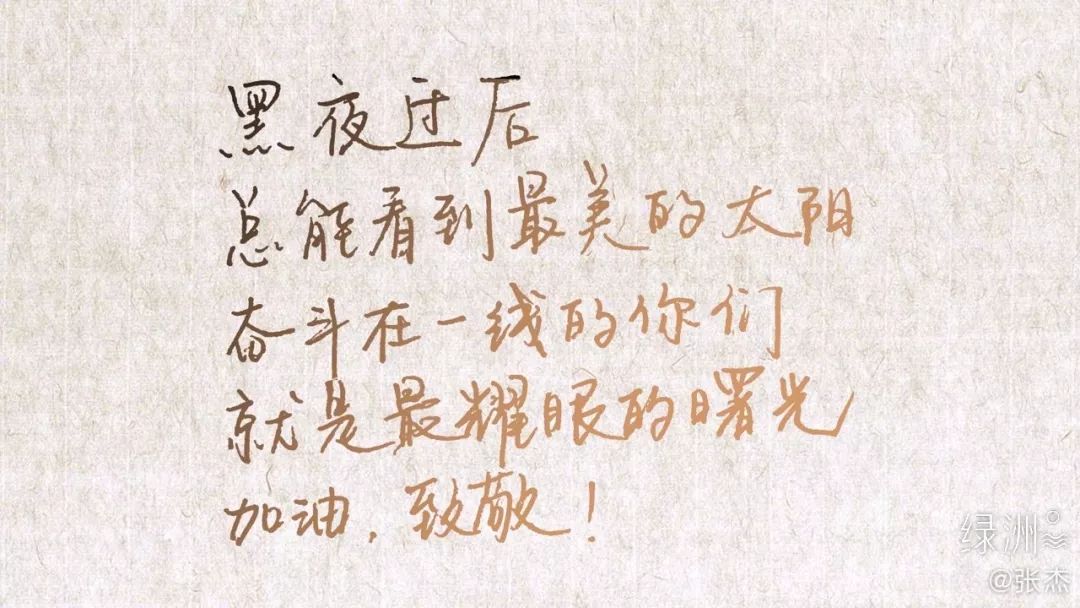 黑夜过后
总能看到最美的太阳
奋斗在一线的你们
就是最耀眼的曙光
加油，致敬！
绿洲
@张杰